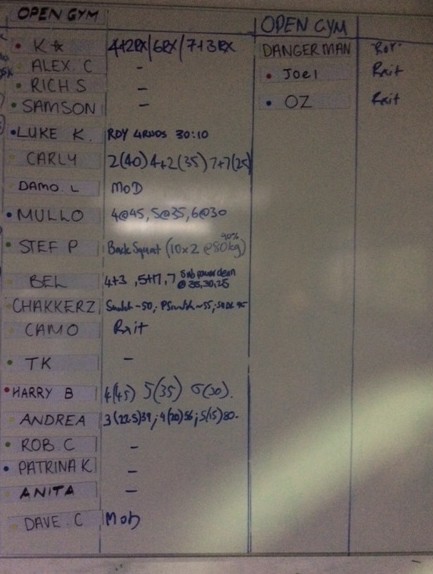 OPEN GYM
K☆ 4+2RX/6RX/7+3RX
ALEX. C -
RICH S -
SAMSON -
LUKE K. RDY 4RNDS 30:10
CARLY 2(40) 4+2(35) 7+7(25)
DAMO L MOD
MULLO 4@45, 5@35, 6@30
STEF P Back Squat (10x2 @80kg) 90%
BEL 4+3, 5+17, 7 @ 35,30,25
CHAKKERZ Snatch-50, PSnatch-55,
CAMO
TK -
HARRY B 4(45) 5(35) 6(30).
ANDREA 3(22.5)39; 4(20)56; 5(15)80.
ROB. C -
PATRINA K. -
ANITA -
DAVE. C MOD
OPEN GYM
DANGERMAN
JOEL
OZ